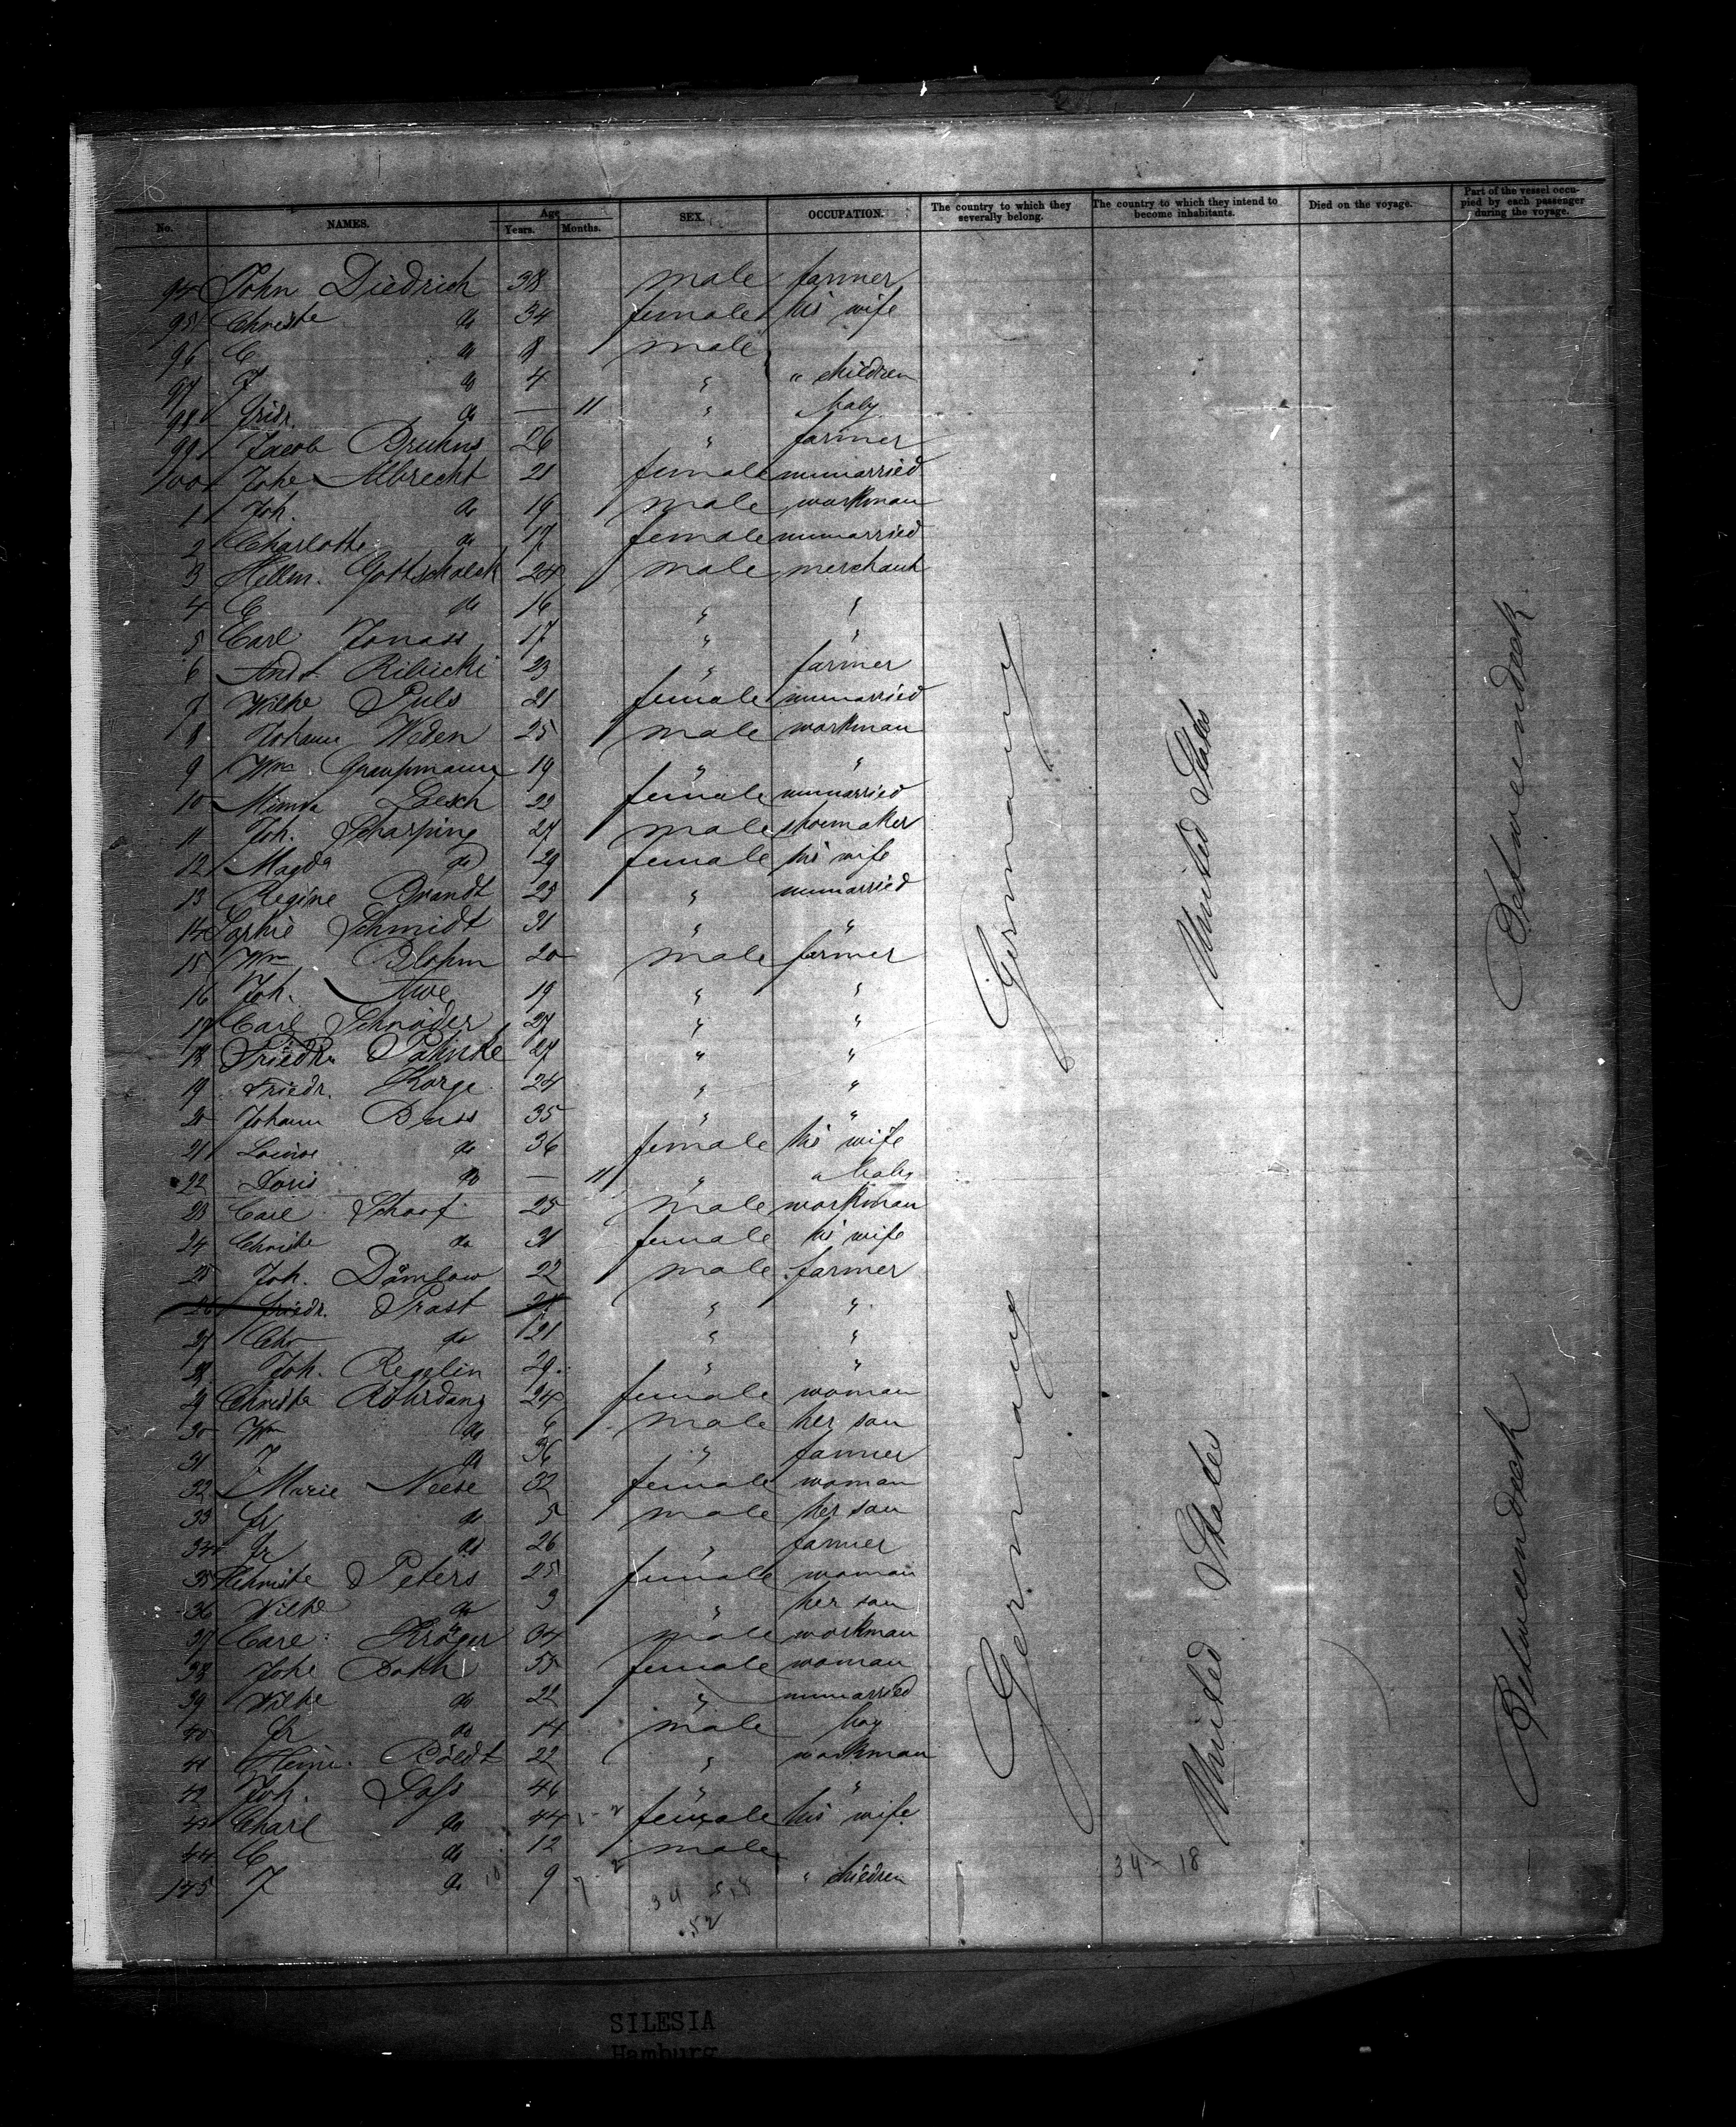 No. NAMES. Age Years. Months. SEX. OCCUPATION. The country to which they severally belong. The country to which they intend to become inhabitants. Died on the voyage. Part of the vessel occupied by each passenger during the voyage.
94 John Diedrich 38 male farmer
95 Christe do 34 female his wife
96 C do 8 male
97 J do 4 " " children
98 Fridr. do — 11 " " baby
99 Jacob Bruhns 26 " farmer
100 Johe Albrecht 21 female unmarried
1 Joh. do 19 male workman
2 Charlotte do 17 female unmarried
3 Hellm. Gottschalck 24 male merchant
4 E do 16 " "
5 Carl Jonass 17 " "
6 And Ribicki 23 " farmer
7 Wilhe Puls 21 female unmarried
8 Johann Weden 25 male workman
9 Wm Graupmann 19 " "
10 Minna Lesch 22 female unmarried
11 Joh. Scharping 27 male shoemaker
12 Magda do 29 female his wife
13 Regine Brandt 23 " unmarried
14 Sophie Schmidt 31 " "
15 Wm Blohm 20 male farmer
16 Joh. Awe 19 " "
17 Carl Schröder 27 " "
18 Friedr. Pahnke 27 " "
19 Friedr. Korge 24 " "
20 Johann Buss 35 " "
21 Louise do 36 female his wife
22 Doris do — 11 " " baby
23 Carl Schoof 25 male workman
24 Christe do 31 female his wife
25 Joh. Dämlow 22 male farmer
26 Friedr. Prast 27 " "
27 Chr do 21 " "
28 Joh. Regelin 29 " "
29 Christe Röhrdanz 24 female woman
30 Wm do 6 male her son
31 J do 36 " farmer
32 Marie Neese 32 female woman
33 Fr do 5 male her son
34 Fr do 26 " farmer
35 Christe Peters 25 female woman
36 Wilhe do 3 " her son
37 Carl Kröger 34 male workman
38 Johe Bokh 55 female woman
39 Wilhe do 22 " unmarried
40 Fr do 14 male boy
41 Heinr. Böldt 22 " workman
42 Joh. Sass 46 " "
43 Charl do 44 female his wife
44 C do 12 male
145 J do 9 " children
Germany
United States
Betweendeck
Germany
United States
Betweendeck
34 - 18
34 18
52
SILESIA
Hamburg